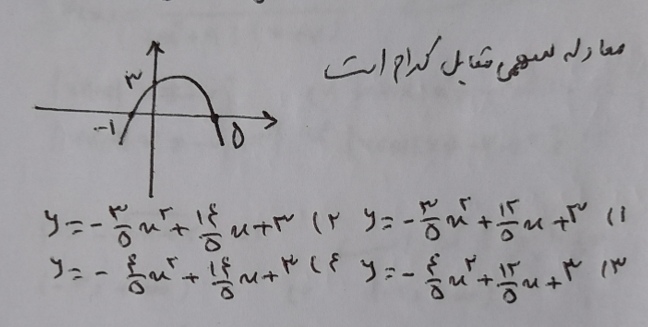 معادله سهمی مقابل کدام است
۳
-۱
۵
۱) y = -۳/۵ x² + ۱۲/۵ x + ۳ ۲) y = -۳/۵ x² + ۱۴/۵ x + ۳
۳) y = -۴/۵ x² + ۱۲/۵ x + ۳ ۴) y = -۴/۵ x² + ۱۴/۵ x + ۳